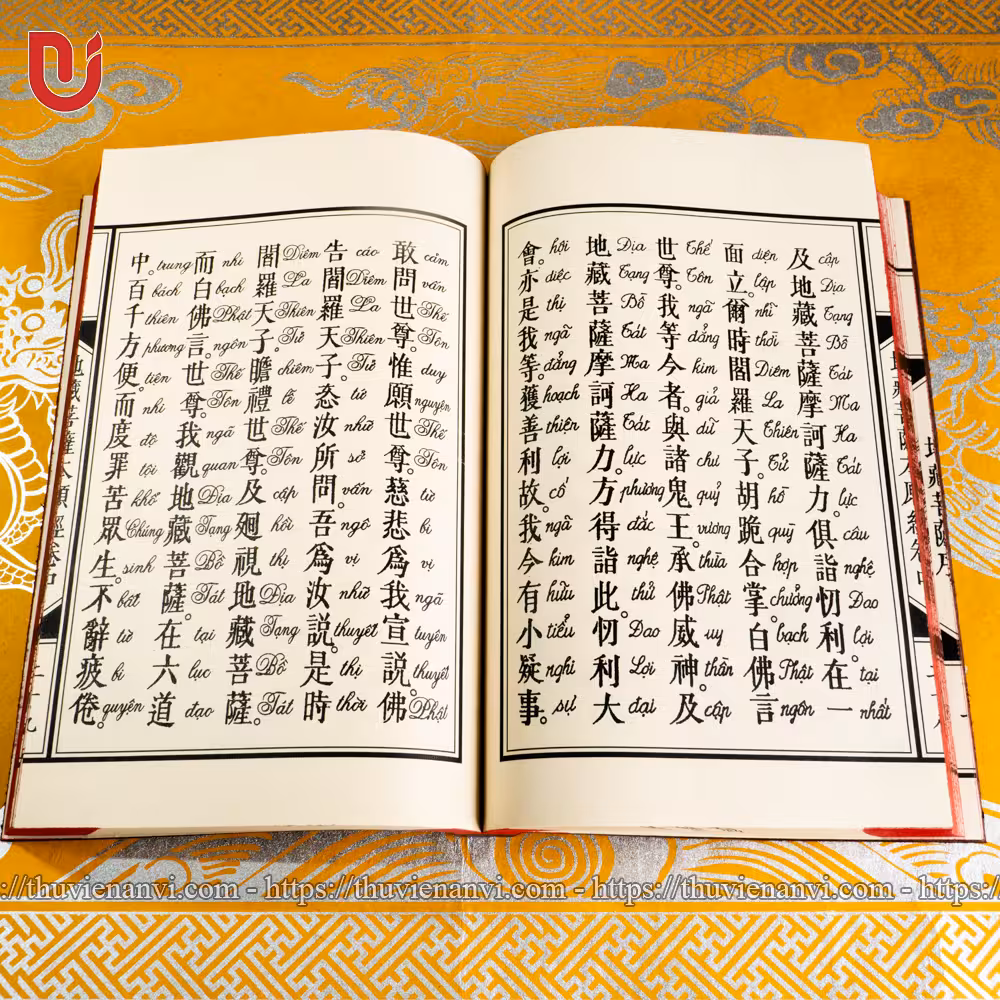 及地藏菩薩摩訶薩力。俱詣忉利在一
cập Địa Tạng Bồ Tát Ma Ha Tát lực câu nghệ Đao lợi tại nhất
面立。爾時閻羅天子。胡跪合掌白佛言
diện lập nhĩ thời Diêm La Thiên Tử hồ quỳ hợp chưởng bạch Phật ngôn
世尊。我等今者。與諸鬼王。承佛威神。及
Thế Tôn ngã đẳng kim giả dữ chư quỷ vương thừa Phật uy thần cập
地藏菩薩摩訶薩力。方得詣此。忉利大
Địa Tạng Bồ Tát Ma Ha Tát lực phương đắc nghệ thử Đao Lợi đại
會。亦是我等。獲善利故。我今有小疑事。
hội diệc thị ngã đẳng hoạch thiện lợi cố ngã kim hữu tiểu nghi sự
敢問世尊。惟願世尊。慈悲爲我宣說。佛
cảm vấn Thế Tôn duy nguyện Thế Tôn từ bi vị ngã tuyên thuyết Phật
告閻羅天子。恣汝所問。吾爲汝說。是時
cáo Diêm La Thiên Tử tứ nhữ sở vấn ngô vị nhữ thuyết thị thời
閻羅天子。瞻禮世尊。及廻視地藏菩薩。
Diêm La Thiên Tử chiêm lễ Thế Tôn cập hồi thị Địa Tạng Bồ Tát
而白佛言。世尊。我觀地藏菩薩。在六道
nhi bạch Phật ngôn Thế Tôn ngã quan Địa Tạng Bồ Tát tại lục đạo
中。百千方便。而度罪苦眾生。不辭疲倦
trung bách thiên phương tiện nhi độ tội khổ Chúng sinh bất từ bì quyện
地藏菩薩本願經卷中
https://thuvienanvi.com - https://thuvienanvi.com - https://thuvienanvi.com -